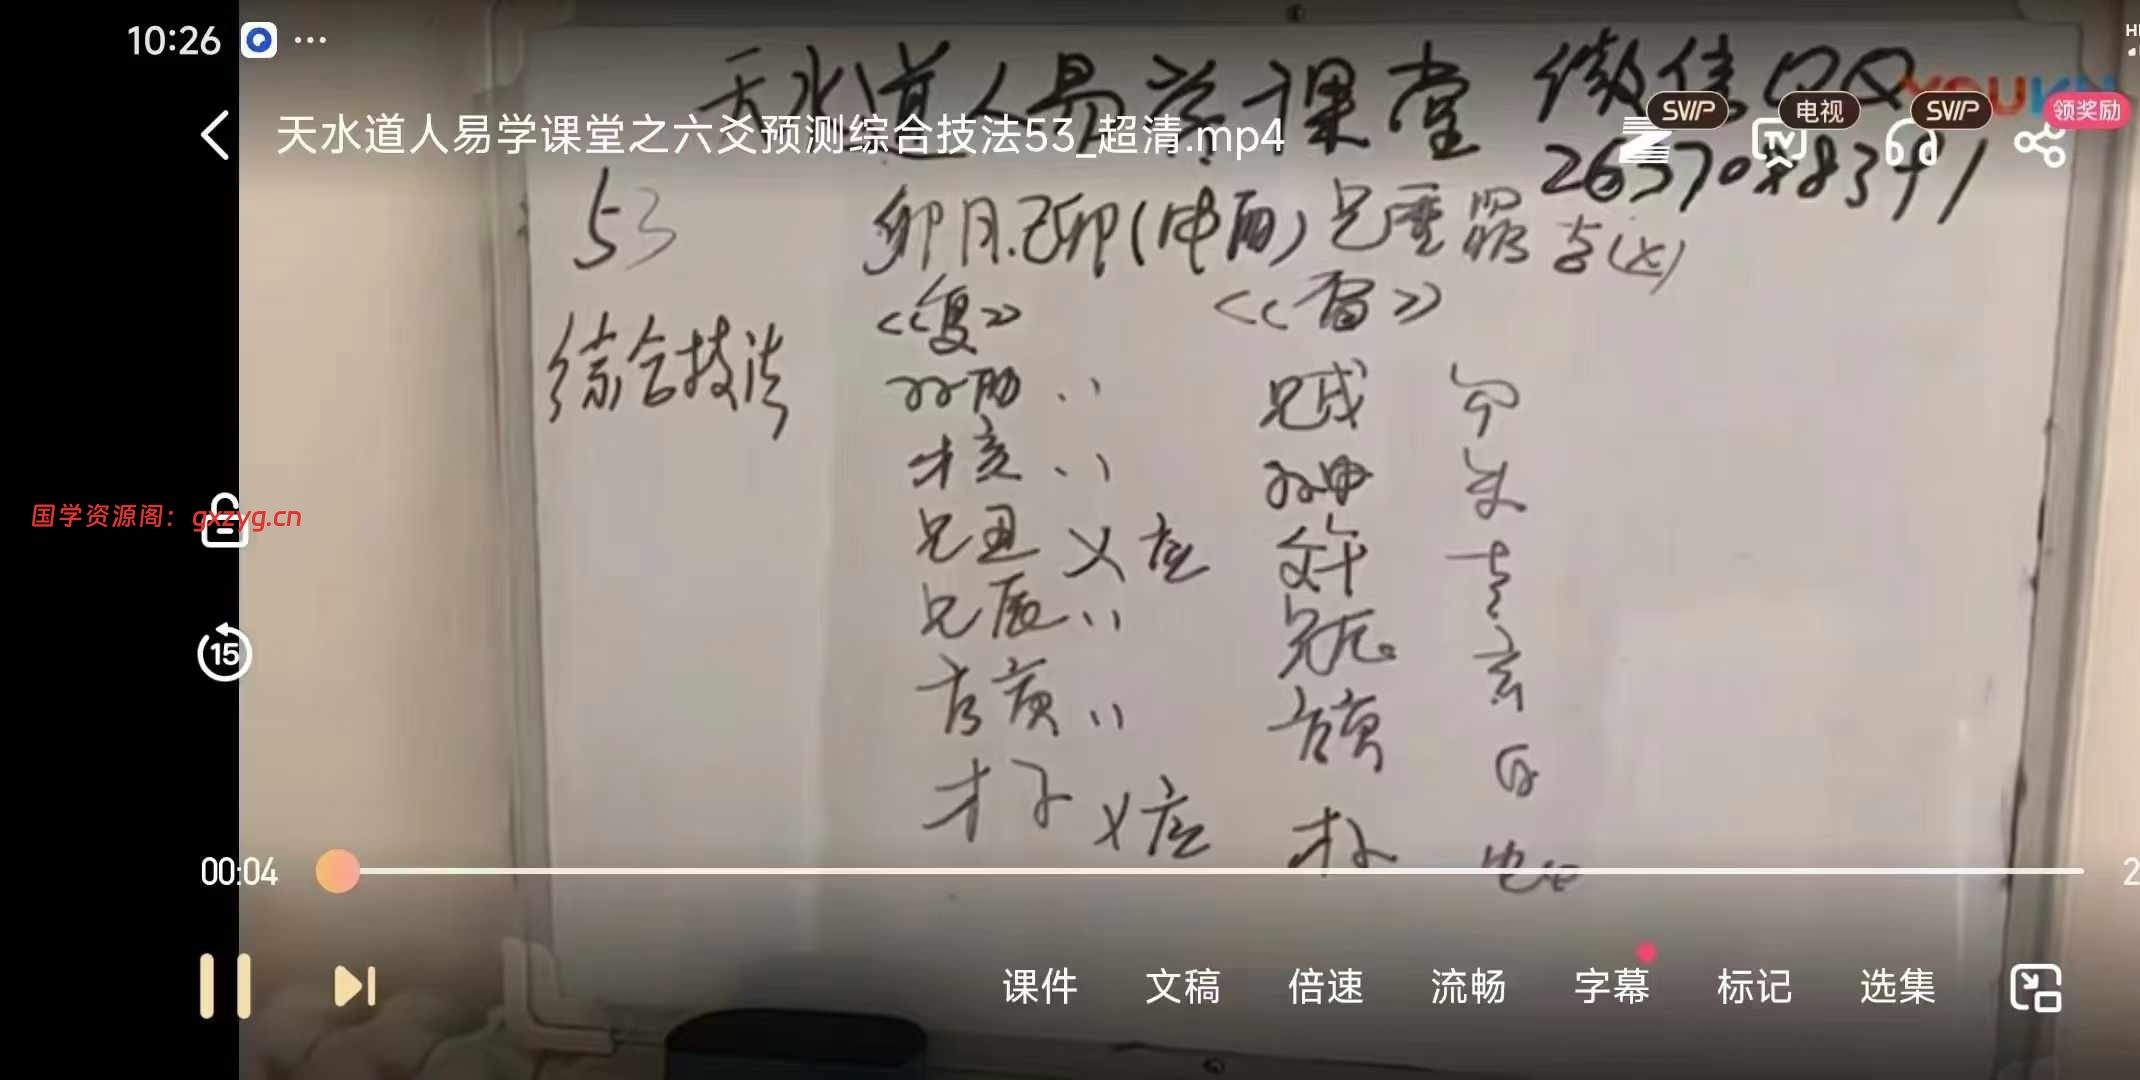 10:26
天水道人易学课堂 微信QQ
YOUKU
SVIP 电视 SVIP 领奖励
天水道人易学课堂之六爻预测综合技法53_超清.mp4
53 卯月.己卯(申酉)
《复》
综合技法
孙酉 、、 兄戌 勾
才亥 、、 孙申 朱
国学资源阁：gxzyg.cn
兄丑 乂 应 父午 青
兄辰 、、 兄辰 玄
15
官寅 、、 官寅 白
才子 乂 世 才子
00:04
课件 文稿 倍速 流畅 字幕 标记 选集